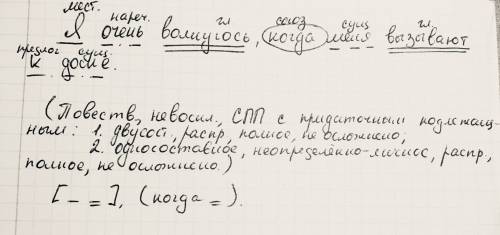 мест. нареч. гл союз сущ гл.
Я очень волнуюсь, когда меня вызывают
предлог сущ.
к доске.
(Повеств., невоскл., СПП с придаточным подлежащ-
ным: 1. двусост., распр, полное, не осложнено,
2. односоставное, неопределённо-личное, распр.,
полное, не осложнено.)
[ – = ], (когда = ).